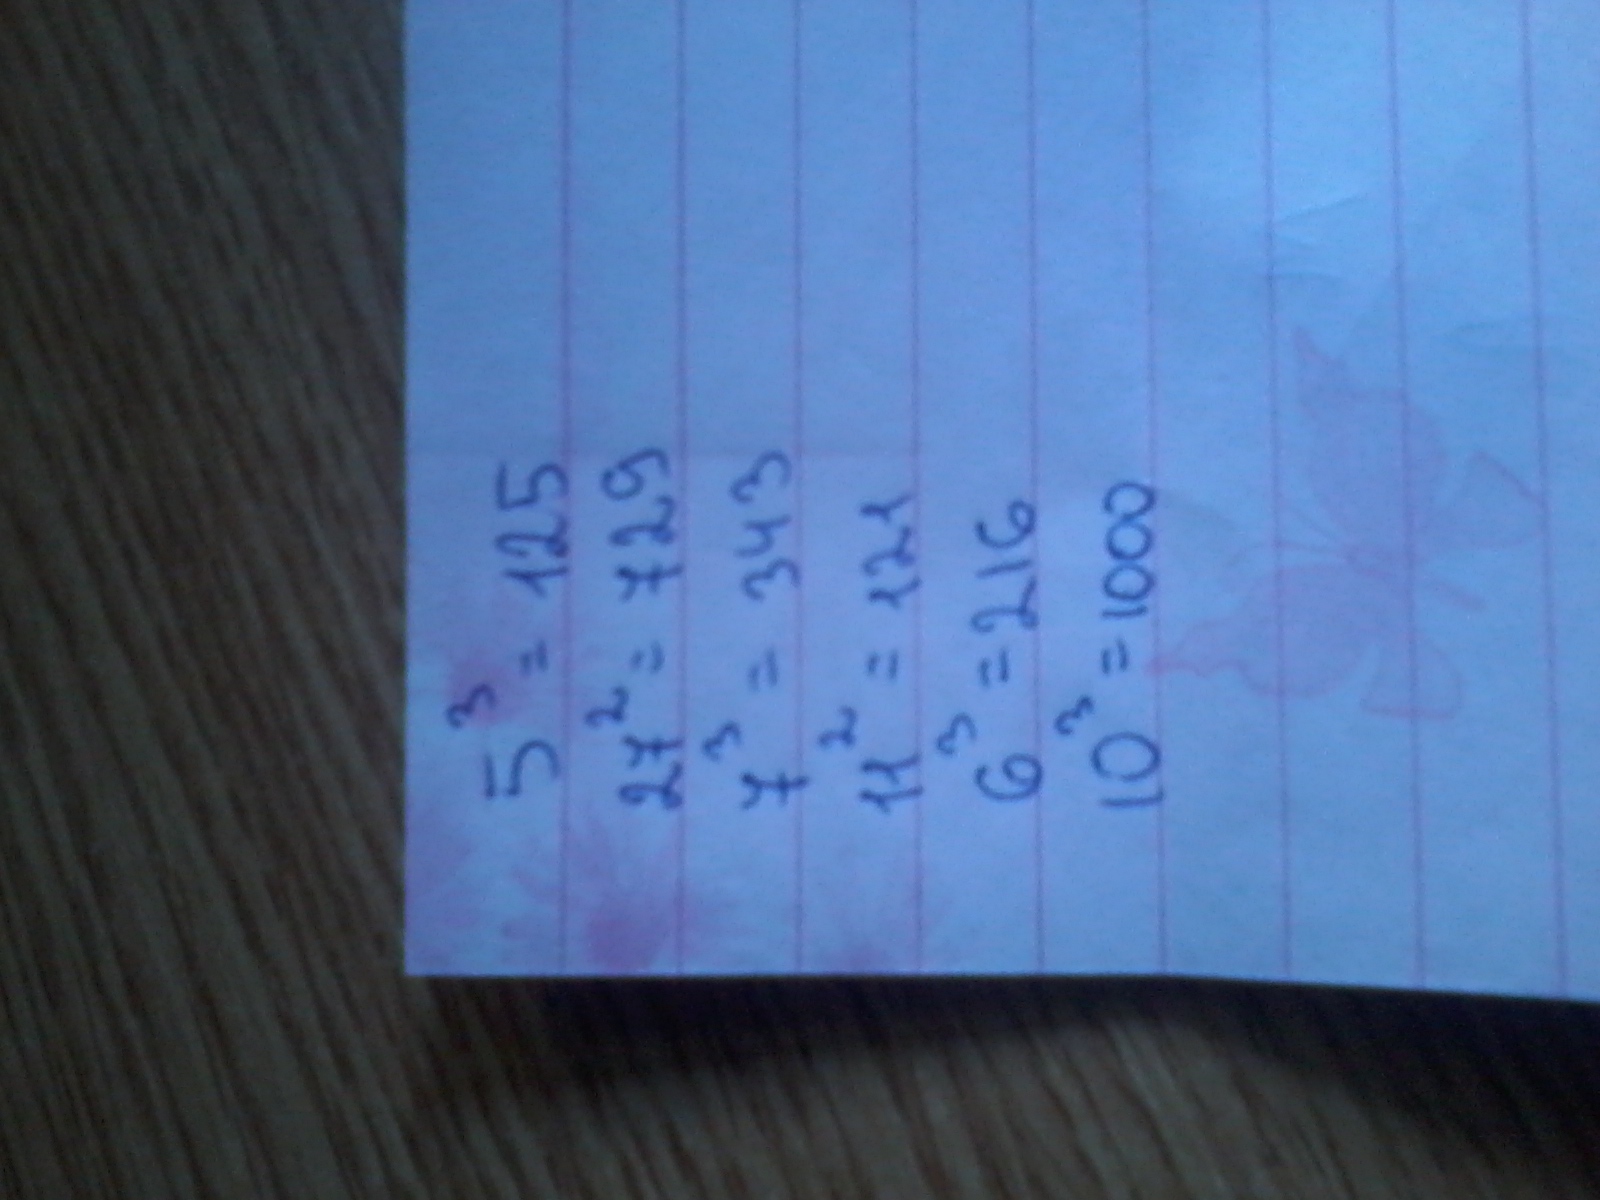 5³ = 125
27² = 729
7³ = 343
11² = 121
6³ = 216
10³ = 1000